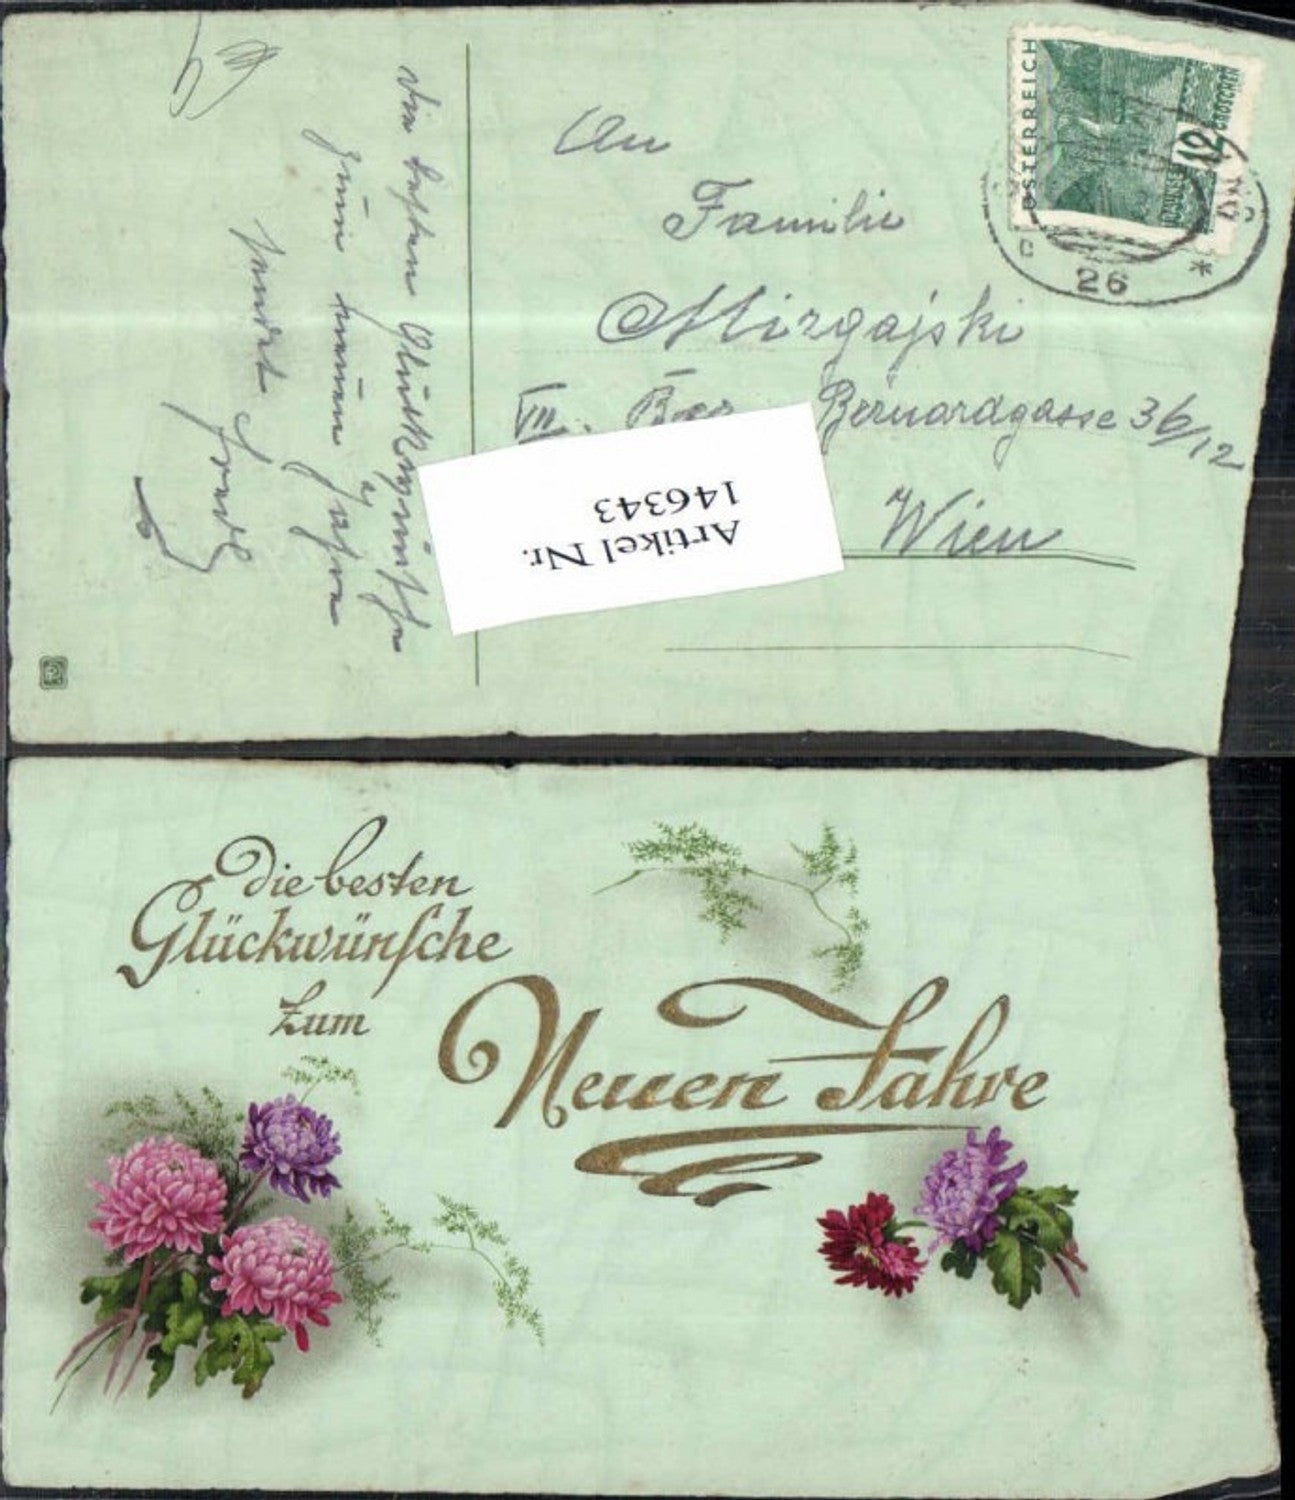 Die besten Glückwünsche
zum neuen Jahre
sendet
An
Familie
Mirgajski
VIII. Bez. Bernardgasse 36/12
Wien
ÖSTERREICH
12
GROSCHEN
26
*
Artikel Nr.
146343
die besten
Glückwünsche
zum
Neuen Jahre